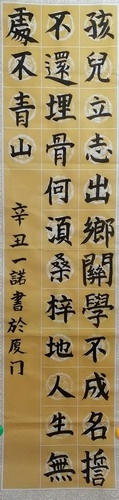 孩兒立志出鄉關學不成名誓
不還埋骨何須桑梓地人生無
處不青山
辛丑一諾書於厦门